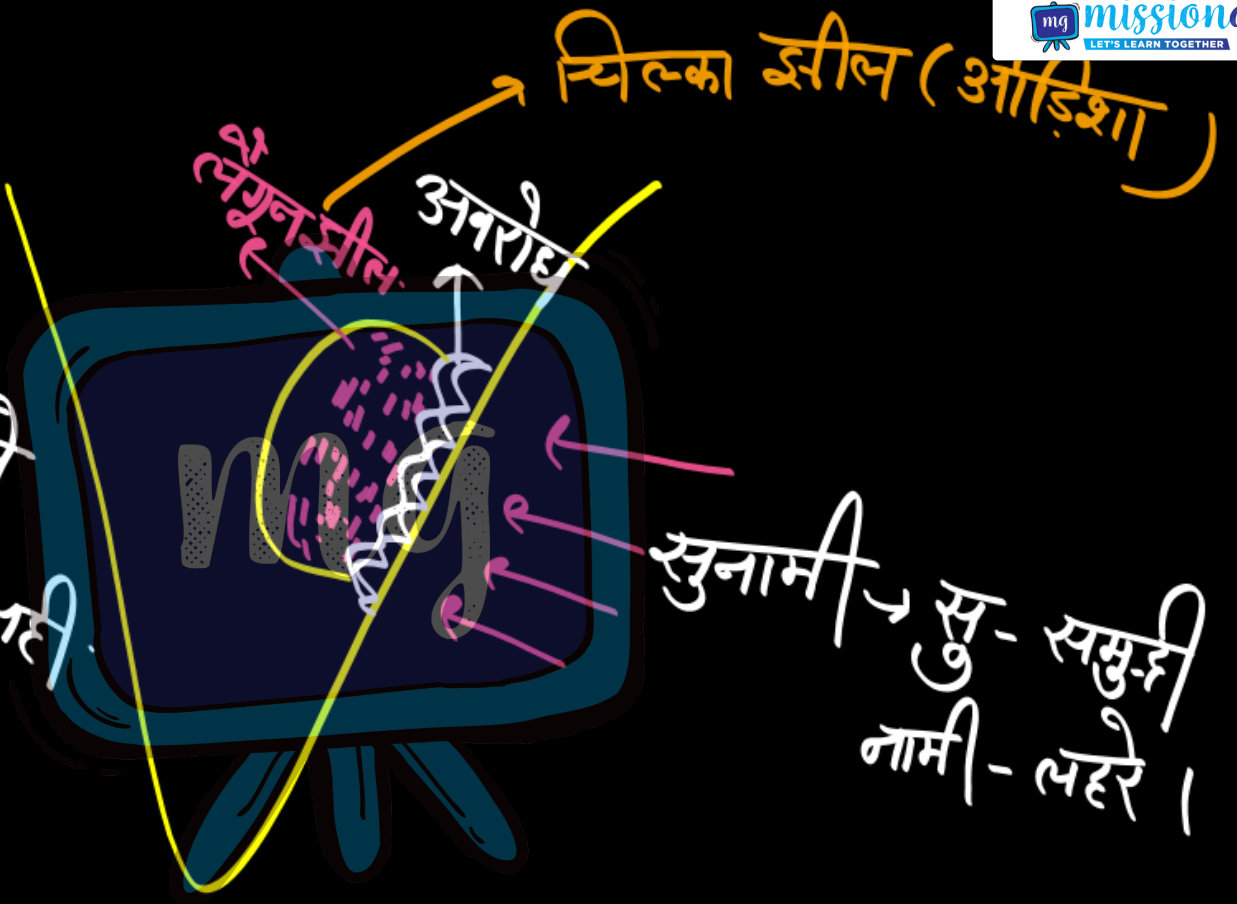 mg mission
LET'S LEARN TOGETHER
चिल्का झील (ओड़िशा)
लैगून झील
अवरोध
mg
सुनामी → सु - समुद्री
नामी - लहरे ।